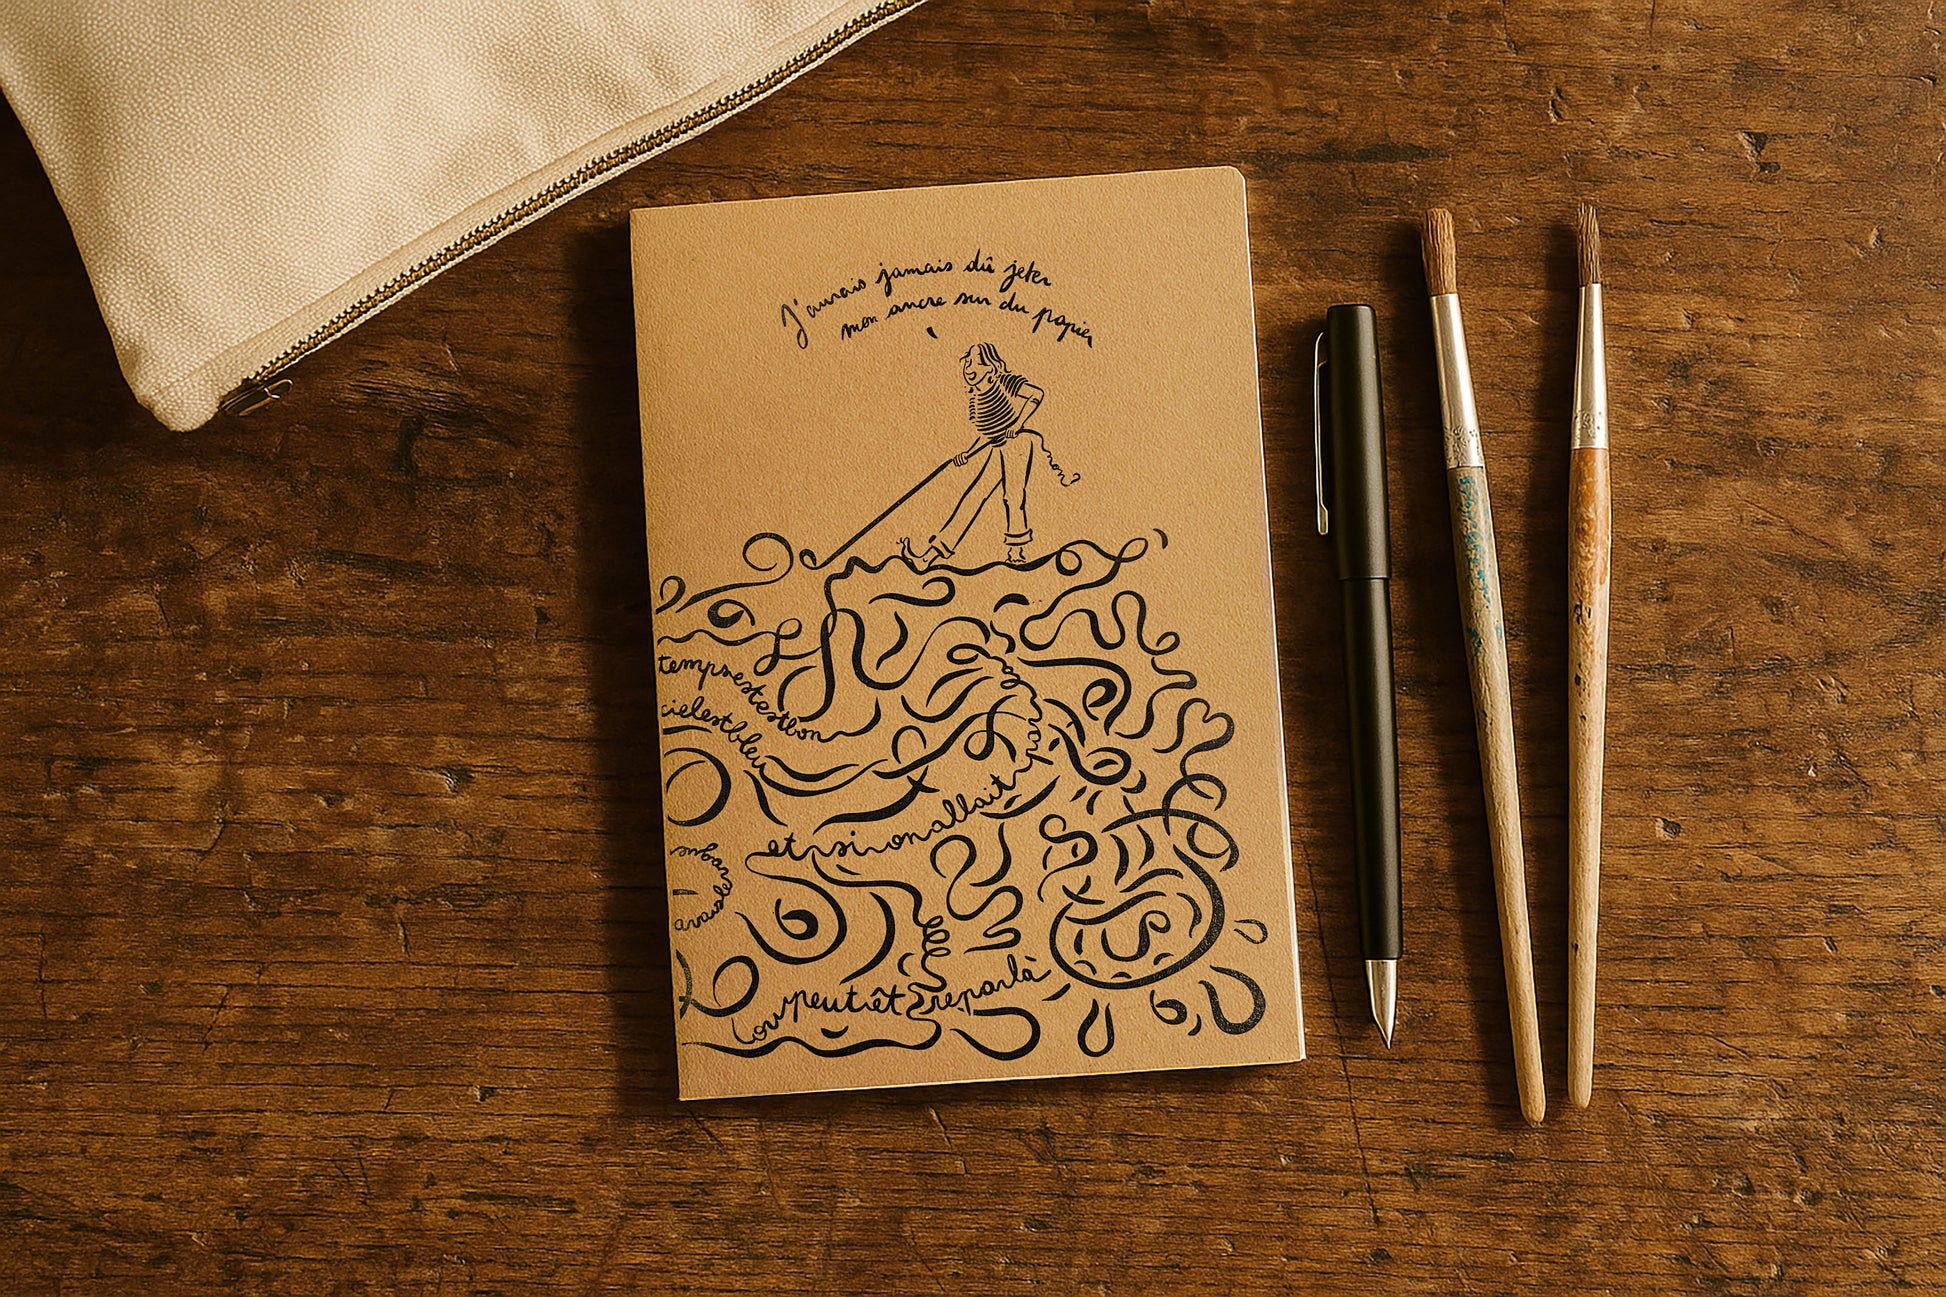 J'aurais jamais dû jeter
mon ancre sur du papier
non?
tempsestestbon
cielestbleu
etsionallait
parla
oupeutêtreparlà